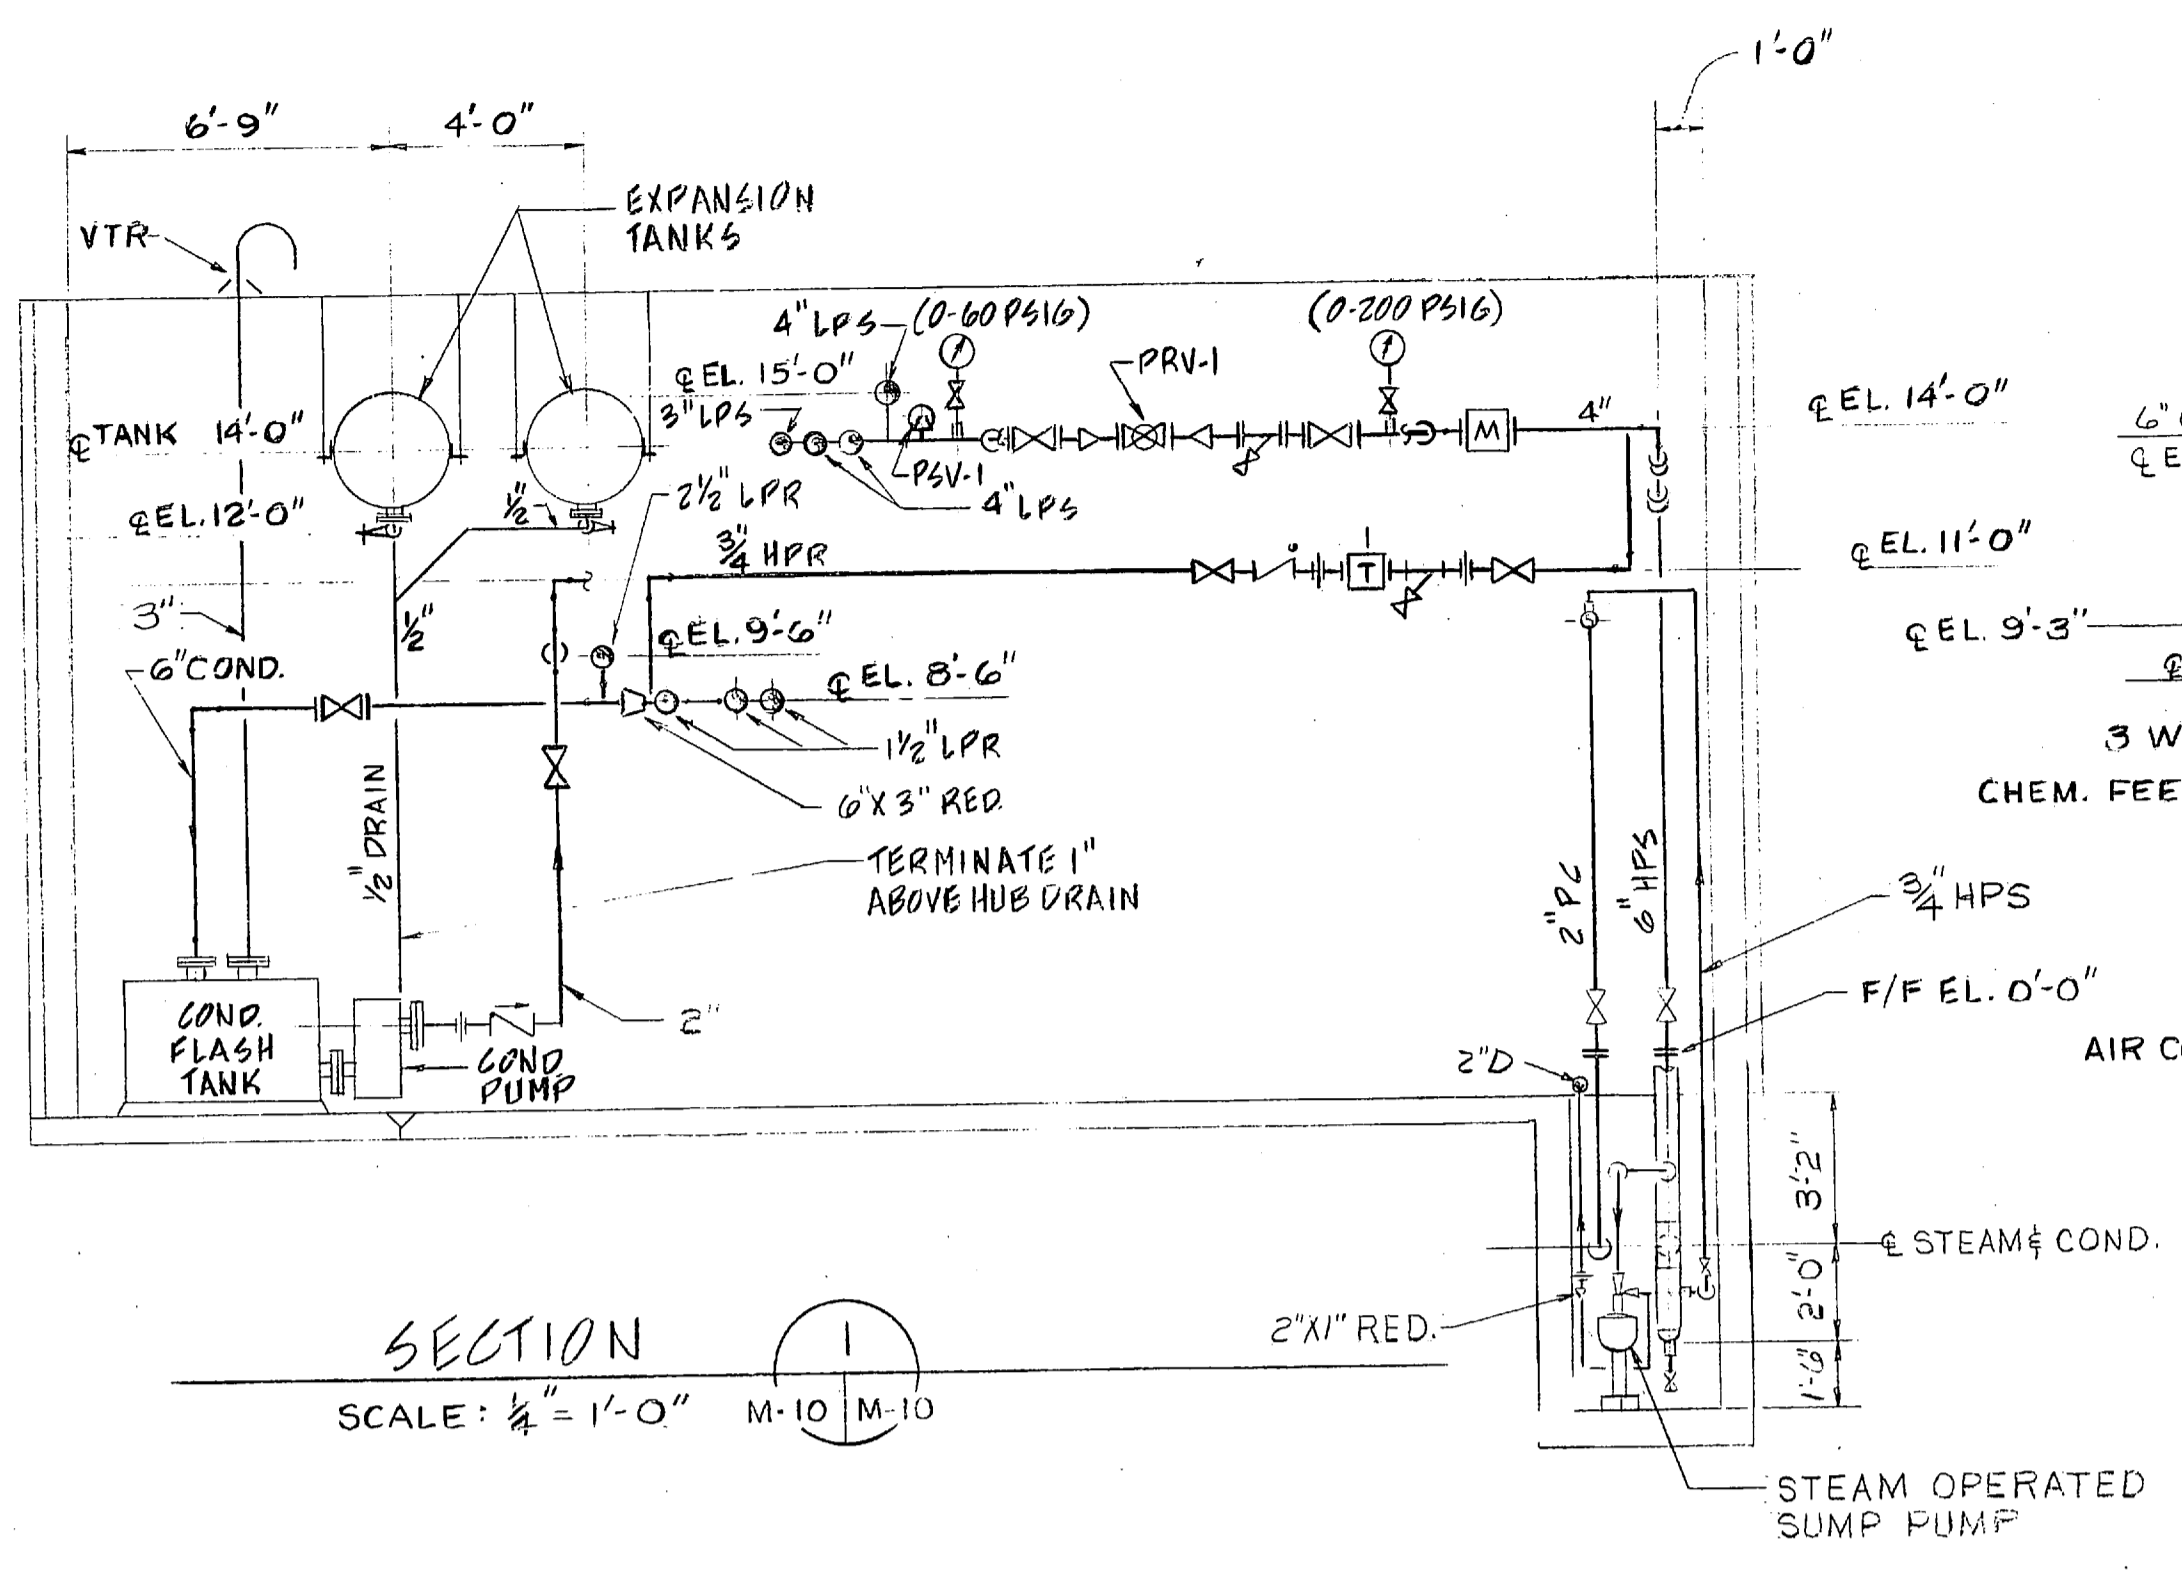 1'-0"
6'-9"
4'-0"
EXPANSION
TANKS
VTR
4" LPS
(0-60 PSIG)
(0-200 PSIG)
℄ EL. 15'-0"
PRV-1
3" LPS
4"
℄ EL. 14'-0"
6"
℄ TANK 14'-0"
M
PSV-1
2½" LPR
4" LPS
℄ EL. 12'-0"
½"
¾" HPR
T
℄ EL. 11'-0"
3"
½"
℄ EL. 9'-6"
℄ EL. 9'-3"
6" COND.
℄ EL. 8'-6"
1½" LPR
3 W
6" X 3" RED.
CHEM. FEE
½" DRAIN
TERMINATE 1"
ABOVE HUB DRAIN
2" PC
6" HPS
¾" HPS
F/F EL. 0'-0"
COND.
FLASH
TANK
2"
COND.
PUMP
2"D
AIR C
3'-2"
℄ STEAM & COND.
2'-0"
2"X1" RED.
1'-6"
SECTION
1
SCALE: ¼" = 1'-0"
M-10 M-10
STEAM OPERATED
SUMP PUMP